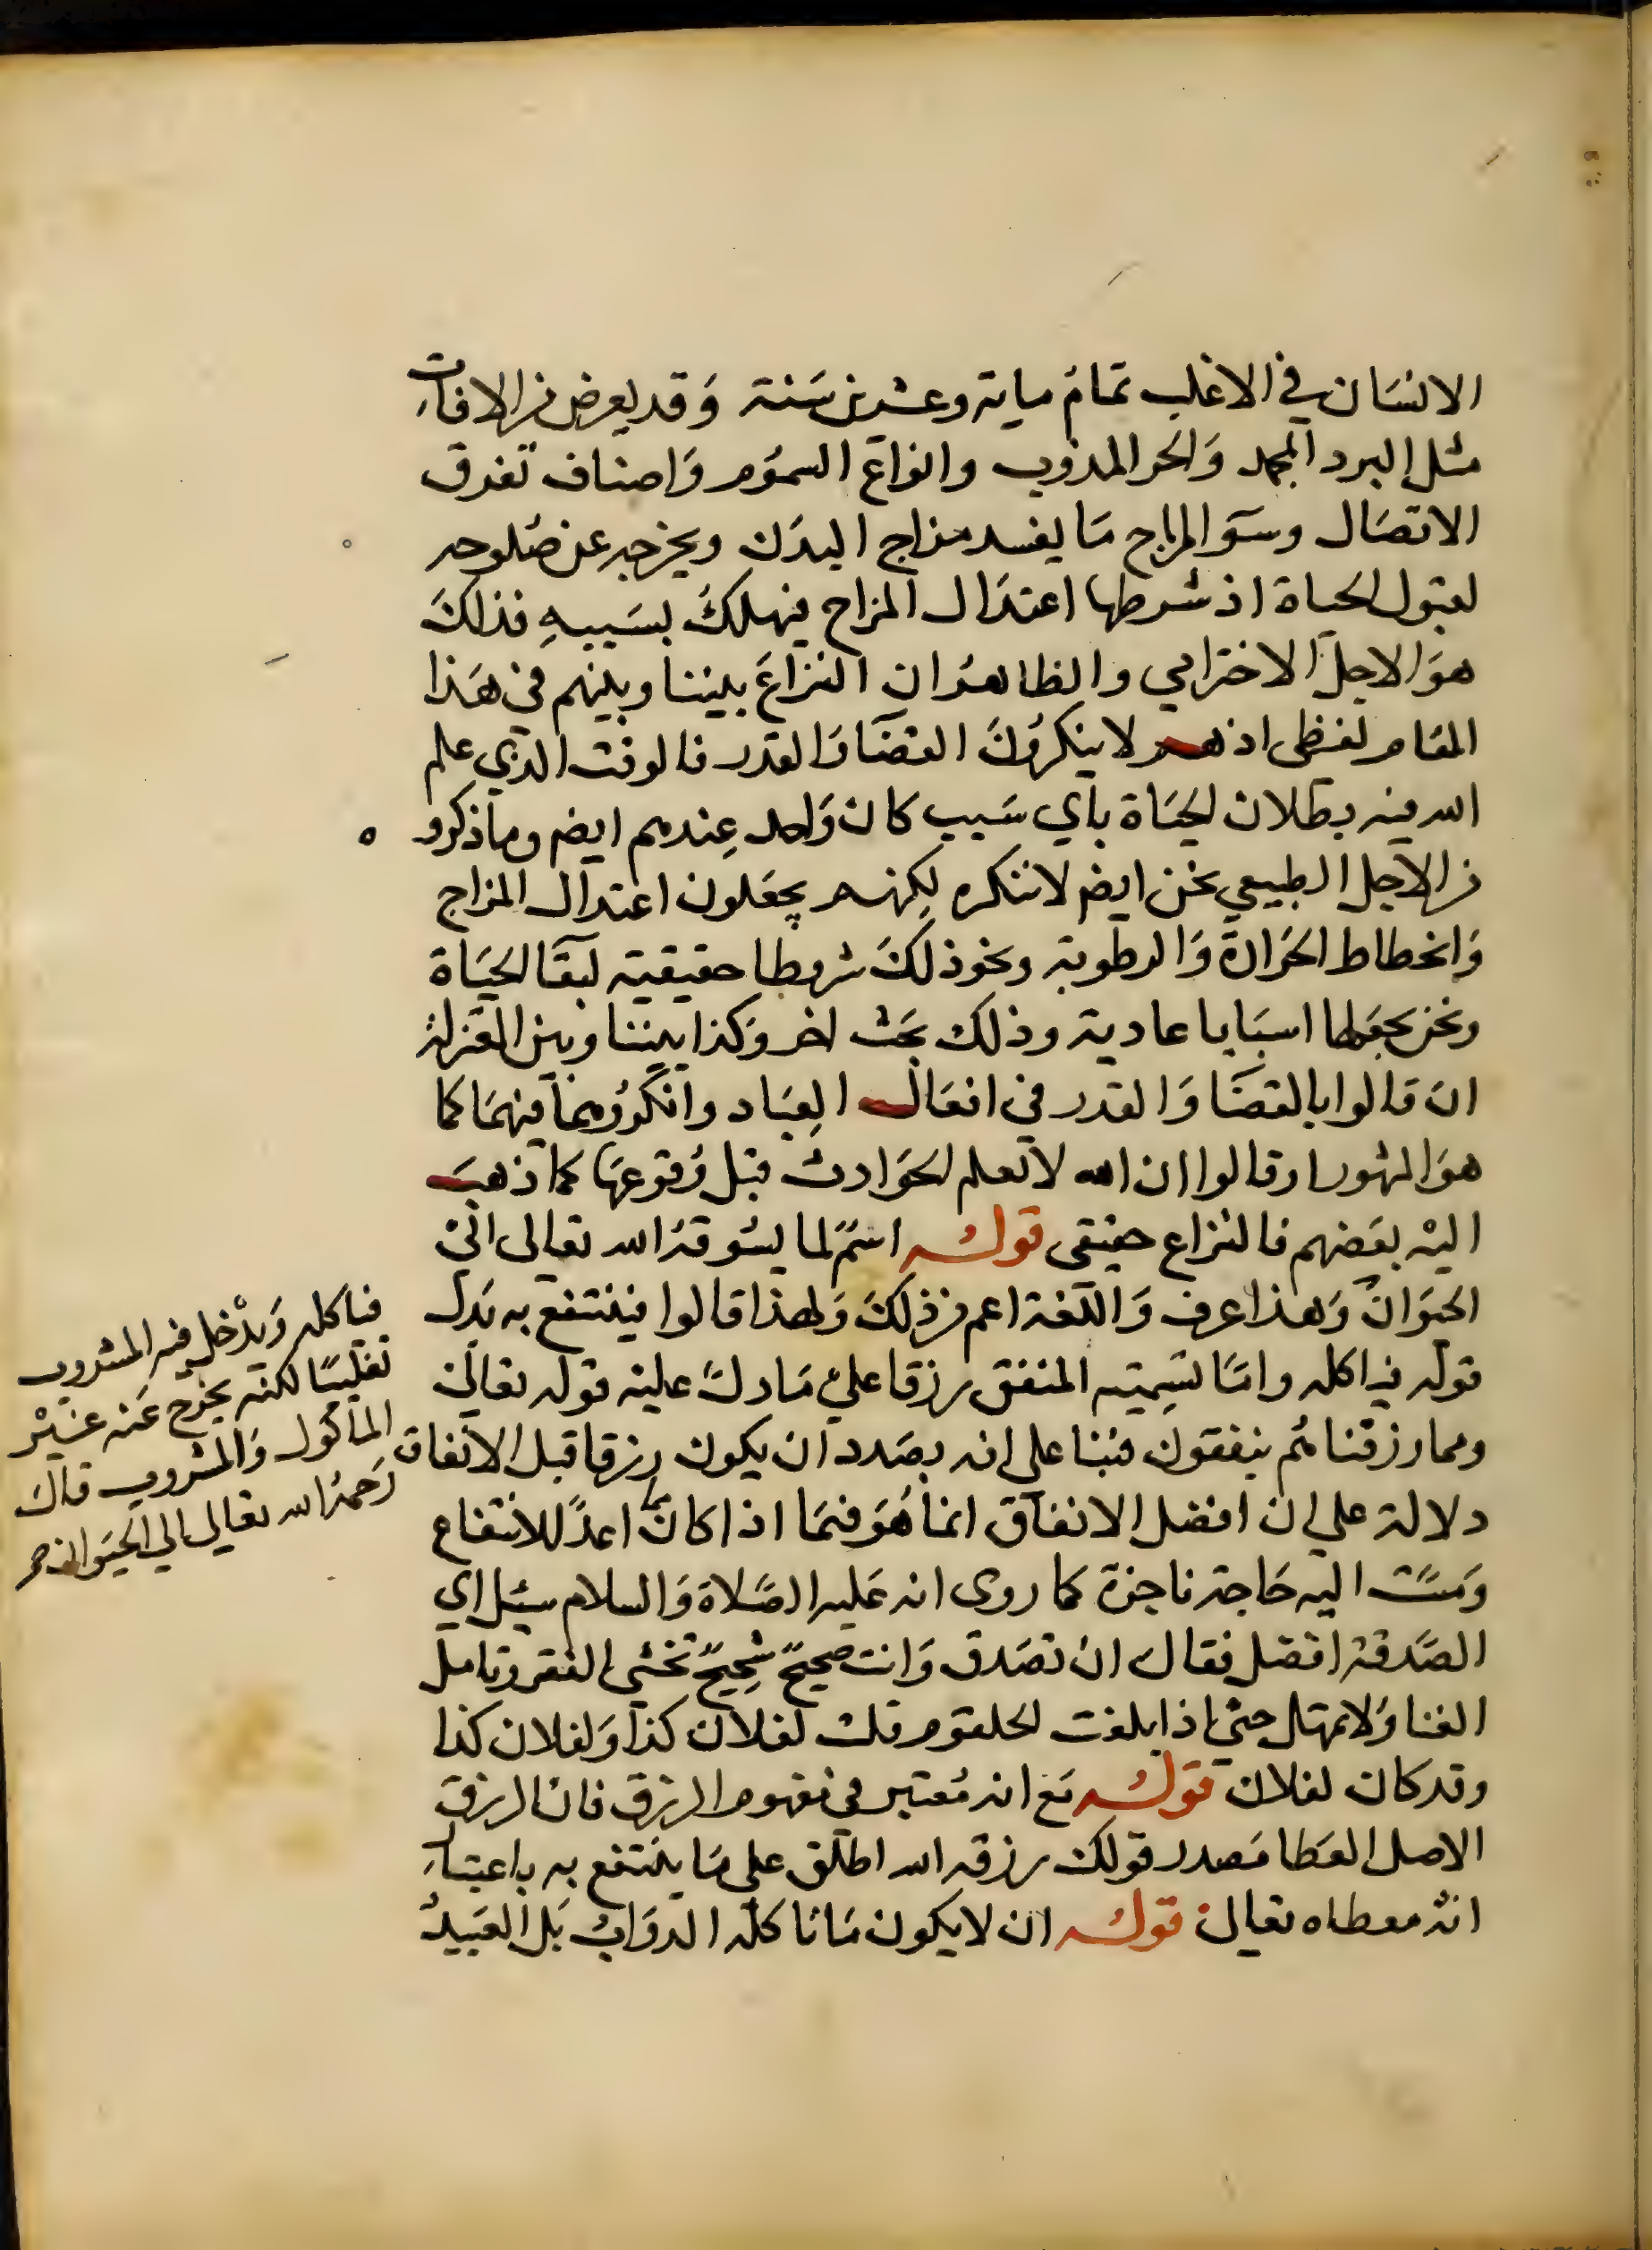 الانسان في الاغلب تمام ماية وعشرين سنة وقد يعرض من الافات
مثل البرد المجمد والحر المذوب وانواع السموم واصناف تفرق
الاتصال وسوء المزاج ما يفسد مزاج البدن ويخرجه عن صلوحه
لقبول الحياة اذ شرطها اعتدال المزاج فيهلك بسببه فذلك
هو الاجل الاخترامي والظاهر ان النزاع بيننا وبينهم في هذا
المقام لفظى اذ هم لا ينكرون القضا والقدر فالوقت الذي علم
الله فيه بطلان الحياة باي سبب كان واحد عندهم ايضا وما ذكرو
من الاجل الطبيعي نحن ايضا لاننكره لكنهم يجعلون اعتدال المزاج
وانحطاط الحرارة والرطوبة ونحو ذلك شروطا حقيقية لبقا الحياة
ونحن نجعلها اسبابا عادية وذلك بحث اخر وكذا بيننا وبين المعتزلة
ان قالوا بالقضا والقدر في افعال العباد وانكروهما فيهما كما
هو المشهور او قالوا ان الله لا يعلم الحوادث قبل وقوعها كما ذهب
اليه بعضهم فالنزاع حقيقى قوله اسم لما يسوقه الله تعالى الى
الحيوان وهذا عرف واللغة اعم من ذلك ولهذا قالوا فينتفع به بدل
قوله فياكله واما تسمية المنفق رزقا على ما دل عليه قوله تعالى
ومما رزقناهم ينفقون فبنا على انه بصدد ان يكون رزقا قبل الانفاق
دلالة على ان افضل الانفاق انما هو فيما اذا كان مما اعد للانتفاع
ومست اليه حاجة ناجزة كما روى انه عليه الصلاة والسلام سئل اي
الصدقة افضل فقال ان تصدق وانت صحيح شحيح تخشى الفقر وتامل
الغنا ولا تمهل حتى اذا بلغت الحلقوم قلت لفلان كذا ولفلان كذا
وقد كان لفلان قوله مع انه معتبر في مفهوم الرزق فان الرزق
الاصل العطا مصدر قولك رزقه الله اطلق على ما ينتفع به باعتبار
انه معطاه تعالى قوله ان لا يكون ما تاكله الدواب بل العبيد
فياكله ويدخل فيه المشروب
تغليبا لكنه يخرج عنه غير
الماكول والمشروب قال
رحمه الله تعالى الى الحيوان صح